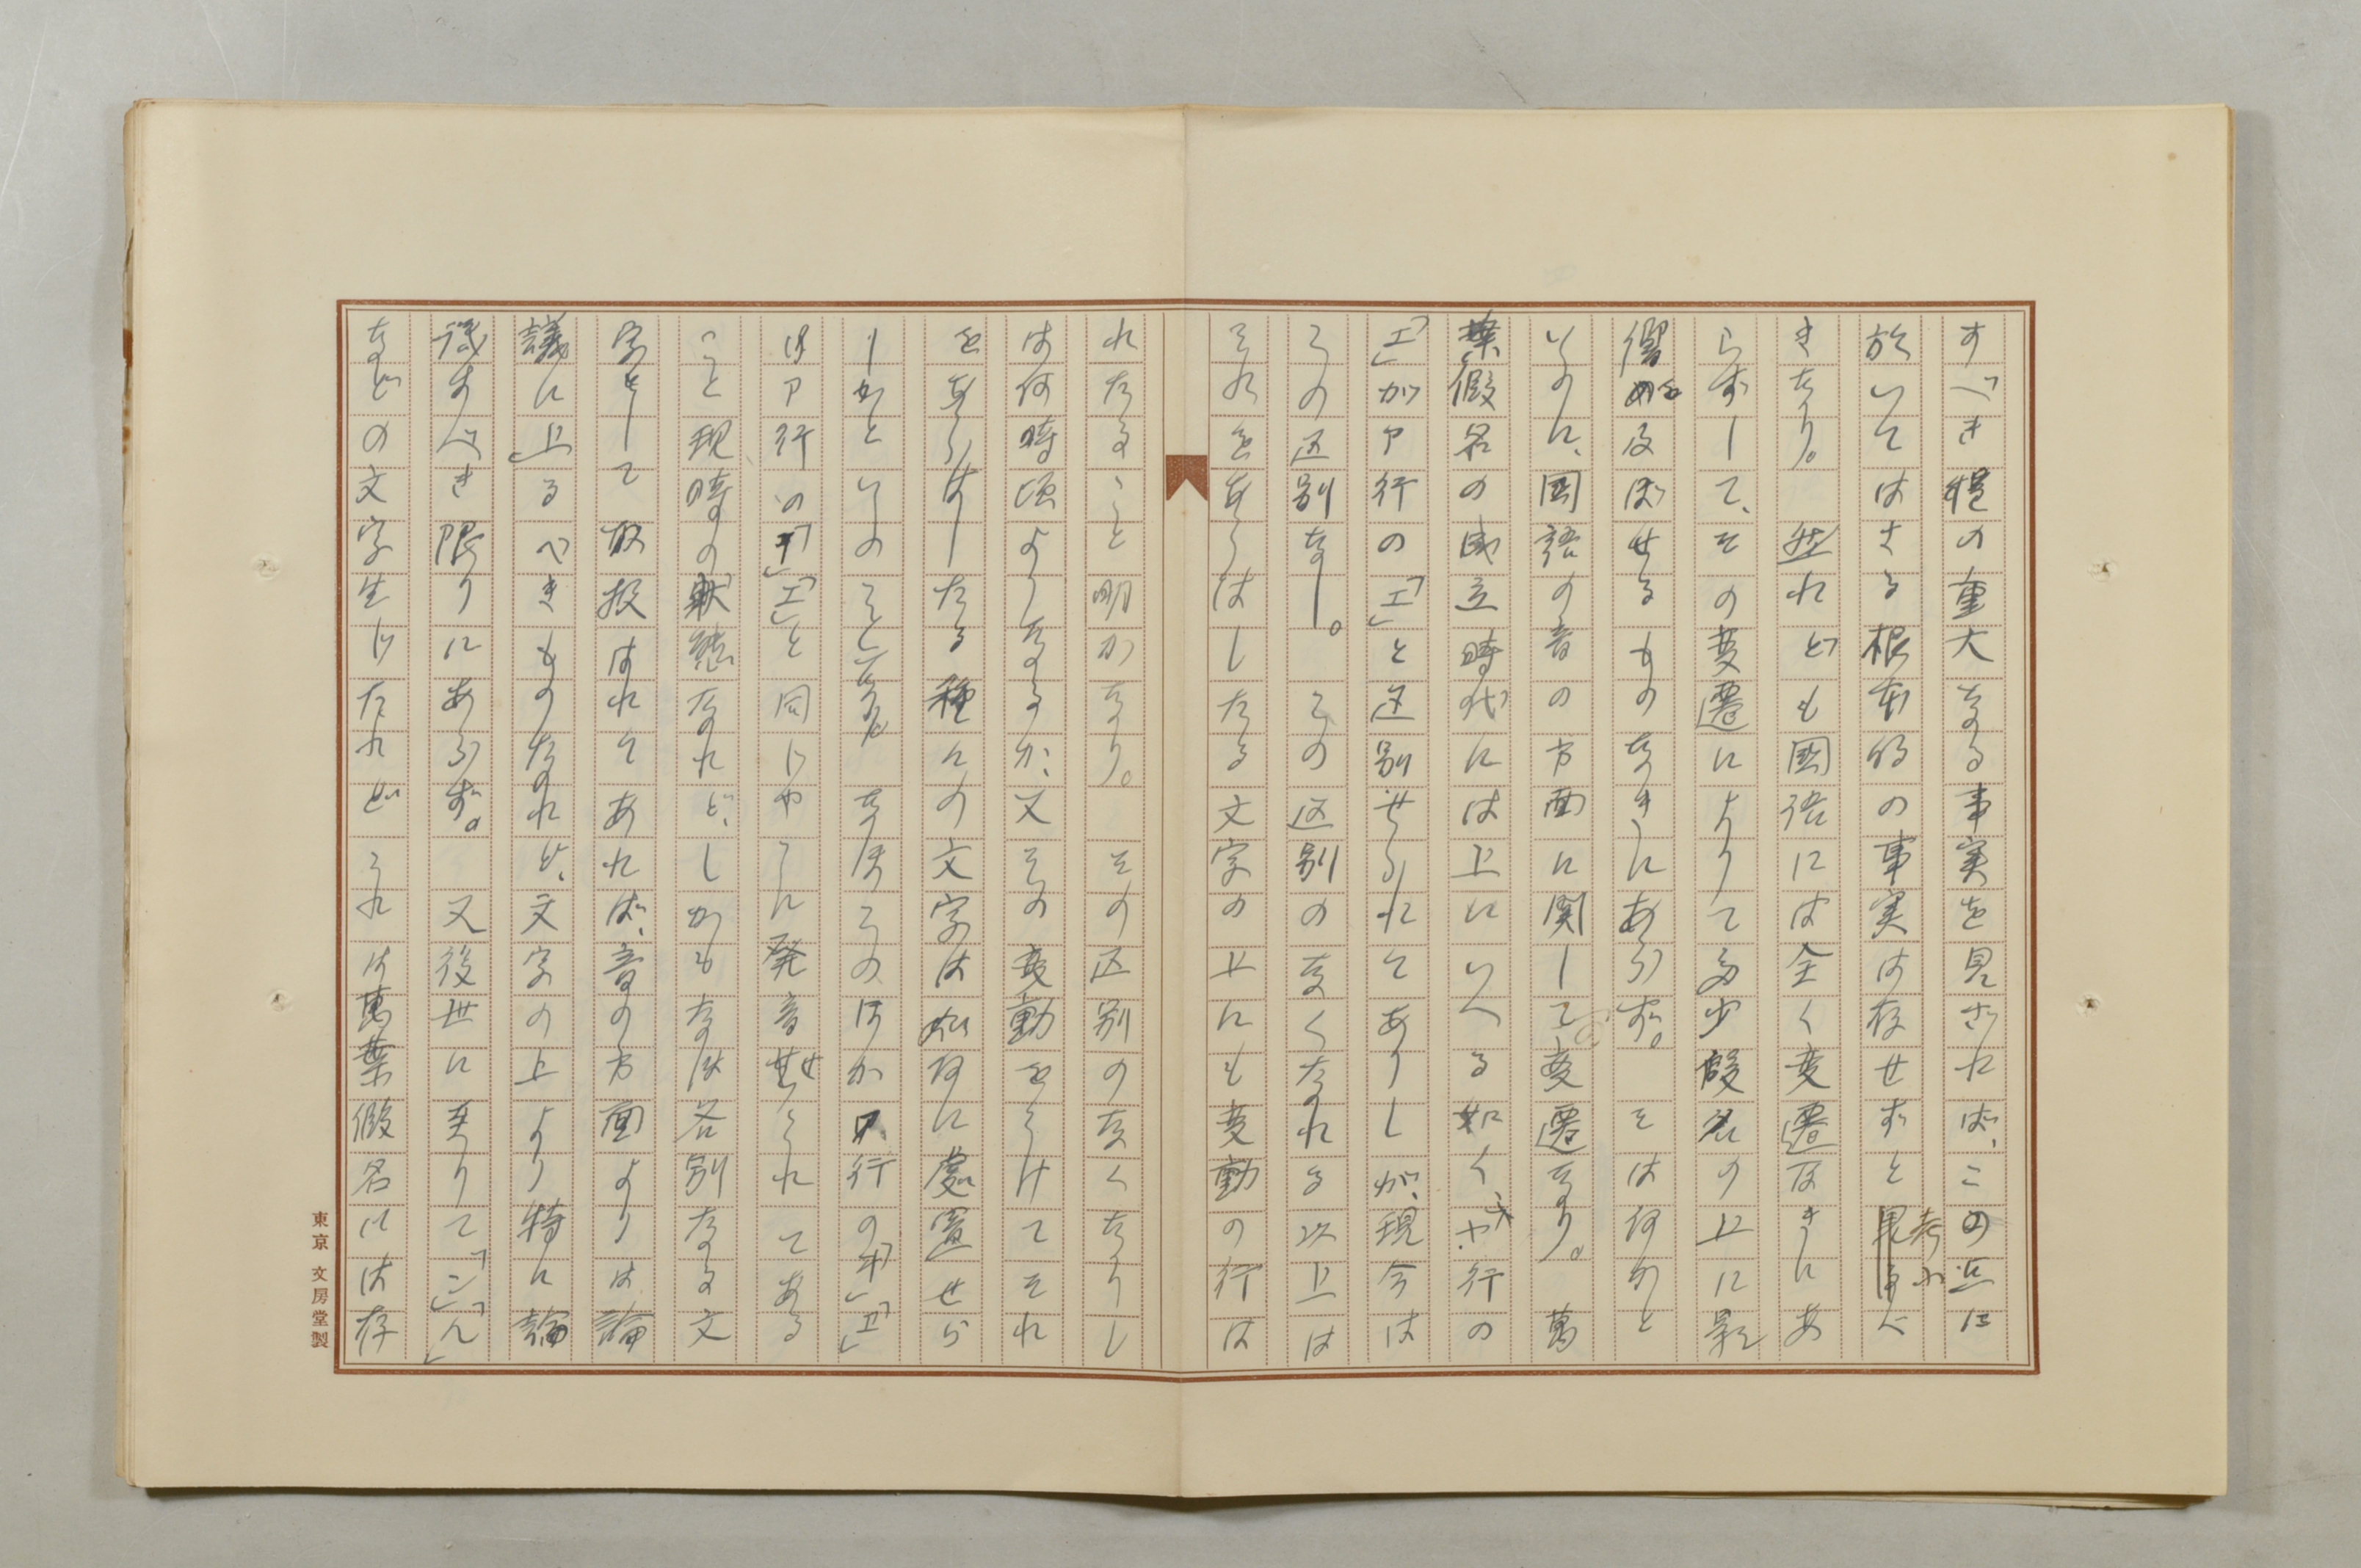 すべき程の重大なる事実を見ざれば、この点に
於いてはさる根本的の事実は存せずと考ふべ
きなり。 然れども國語には全く変遷なきにあ
らずして、その変遷によりて多少假名の上に影
響を及ぼせるものなきにあらず。 そは何かと
いふに、国語の音の方面に関して変遷あり。 萬
葉假名の成立時代には上にいへる如く、ヤ行の
「エ」がア行の「エ」と区別せられてありしが、現今は
この区別なし。 この区別のなくなれる以上は
それをあらはしたる文字の上にも変動の行は
れたること明かなり。 その区別のなくなりし
は何時頃よりなるか、又その変動をうけてそれ
をあらはしたる種々の文字は如何に處置せら
しかといふこと なほこのほかワ行の「ヰ」「ヱ」
はア行の「イ」「エ」と同じやうに発音せられてある
こと現時の状態なれど、しかもなほ各別なる文
字として取扱はれてあれば、音の方面よりは論
議に上るべきものなれど、文字の上より特に論
議すべき限りにあらず。 又後世に至りて「ン」「ん」
などの文字生じたれどこれは萬葉假名には存
東京 文房堂製